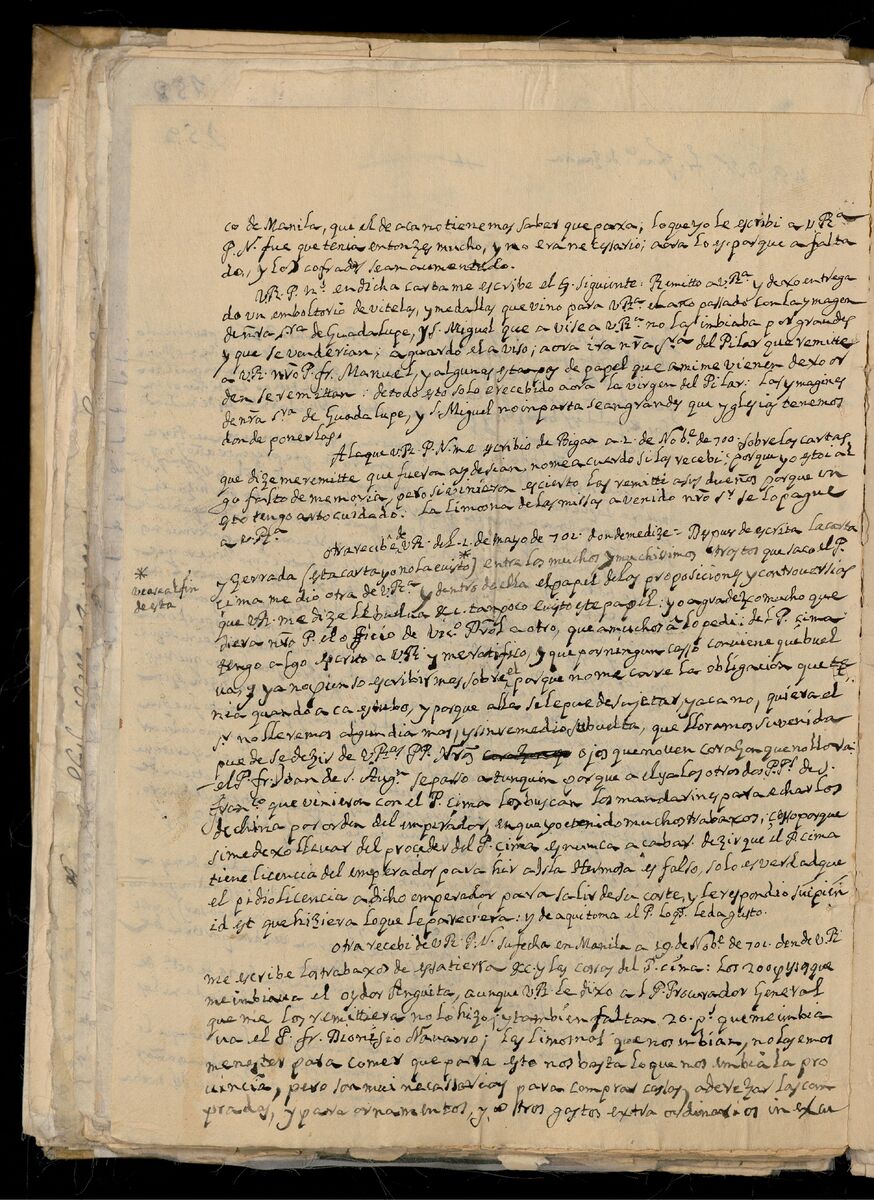 co de Manila, que el de aca no tienemos saber que paxa; lo que yo le escribi a V Rᵃ
P. N. fue que tenia entonzes mucho, y no era necessario; aora lo es porque a falta
do, y los cofrades sean aumentado.
VR. P. nᵃ. en dicha carta me escribe el § siguiente: Remitto a VRᵃ y dexo entrega
do un emboltorio de vitelas, y medallas que vino para VRᵃ el año passado con la ymagen
de nrã Srᵃ de Guadalupe, y S. Miguel que a vise a VRᵃ no las imbiaba por grandes
y que se vanderian; aguardo el a viso; aora ira nrã Srᵃ del Pilar que remitte
a VR. nrõ P. fr. Manuel, y algunas estampas de papel que a mi me vienen dexo or
den se remittan: de todo esto solo e recebido aora la virgen del Pilar: Las ymagines
de nrã Srᵃ de Guadalupe, y S. Miguel no inparta sean grandes que yglesia tenemos
donde ponerlas.
A la que VR. P. N. me escribio de Bigaa a 2. de Nobᵉ de 700. sobre las cartas
que dize me remitte que fueron a y desean, no me a cuerdo si las recebi; porque yo estoi al
go falto de memoria, pero si vinieron es cierto las remitti a sus dueños porque en
esto tengo arto cuidado: la limosna de las missas a venido nrõ Sʳ se lo pague
a VRᵃ
otra recibi de VR. del 2. de mayo de 702. donde me dize = Despues de escrita la carta
y Zerrada (esta carta yo no la e uisto*) entra los muchos y muchisimos trastos que saco el P.
* vease al fin
de esta
Cima me dio otra de VRᵃ, y dentro de ella el papel de las proposiciones y controversias
que VR. me dize le buelua &c. tampoco e uisto este papel: yo agradezco mucho que
diera nrõ P. el officio de Vicᵒ Prõl a otro, que a muchos años lo pedi; del P. Cima
tengo algo escrito a VR. y me ratifico, y que por ningun casso conviene que buel
va, y ya no pienso escribir mas sobre el porque no me corre la obligacion que te
nia quando a ca estubo, y porque alla se le puede sujetar, y aca no, quiera el
Sʳ no lloremos algun dia mas, y sin remedio su buelta, que lloramos su venida
puede se dezir de VRᵃˢ PP. Nrõs ojos que no uen corazon que no llora:
el P. fr. Joan de S. Augⁿ se passo a tunquin porque a el y a los otros dos PPˢ de S.
Francᵒ que vinieron con el P. Cima los buscan los mandarines para echarlos
de china por orden del emperador, en que yo e tenido muchos trabaxos; cesso porque
si me dexo lleuar del proceder del P. Cima es nunca acabar. dezir que el P. Cima
tiene licencia del emperador para hir a Isla Hermosa es falso, solo es verdad que
el pidio licencia a dicho emperador para salir de su corte, y le respondio suipien
id est que hiziera lo que le pareciera: y de aqui toma el P. lo q̃ le da gusto.
Otra recebi de VR. P. N. su fecha en Manila a 19 de Nobᵉ de 701. donde VR.
me escribe los trabaxos de essa tierra &c. y las cosas del P. Cima: Los 200 pˢ
que me imbiaua el oydor Angulta, aunque VR. le dixo al P. Procurador General
que me los remittiera no lo hizo; y tambien faltan 20. pˢ. que me imbia
va el P. fr. Dionisio Navarro; las limosnas que nos imbian, no las emos
menester para comer que para esto nos basta lo que nos imbia la pro
uincia, pero son mui necessarias para comprar casas, aderezar las com
pradas, y para ornamentos, y otros gastos extra ordinarios in excu